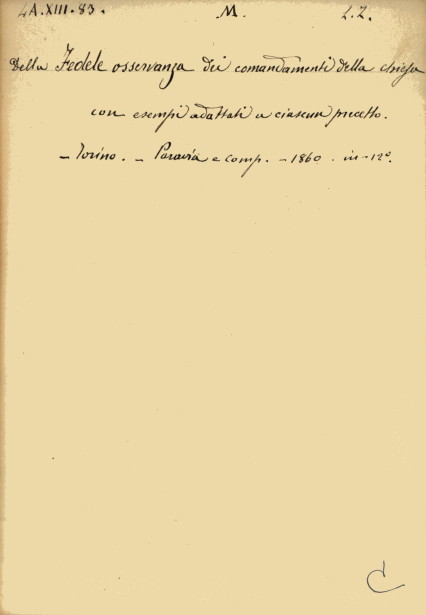 4A.XIII.83. M. L.Z.
Della Fedele osservanza dei comandamenti della chiesa
con esempi adattati a ciascun precetto.
– Torino. – Paravia e comp. – 1860. in-12°.
C